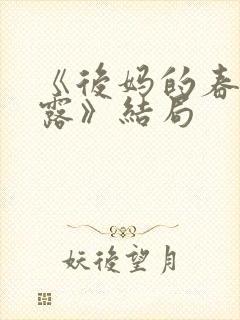 《後妈的春
露》結局
妖後望月